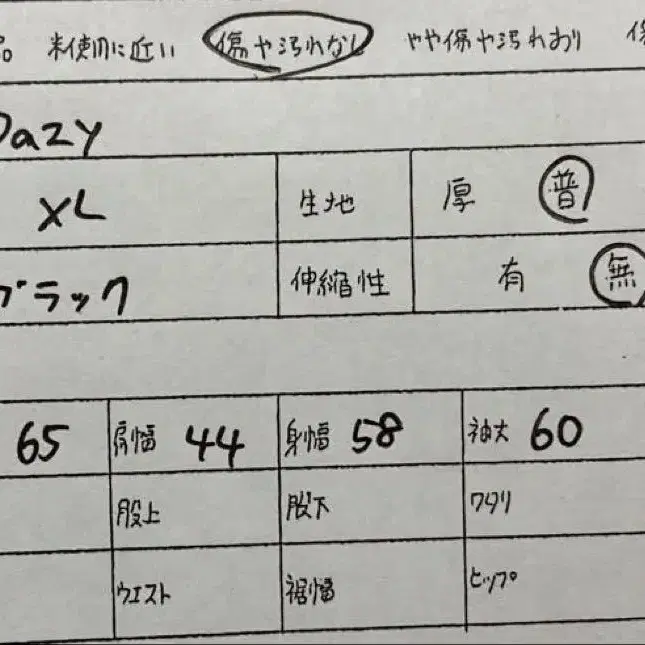 品 未使用に近い 傷や汚れなし やや傷や汚れあり 傷
Dazy
XL 生地 厚 普
ブラック 伸縮性 有 無
65 肩幅 44 身幅 58 袖丈 60
股上 股下 ワタリ
ウエスト 裾幅 ヒップ